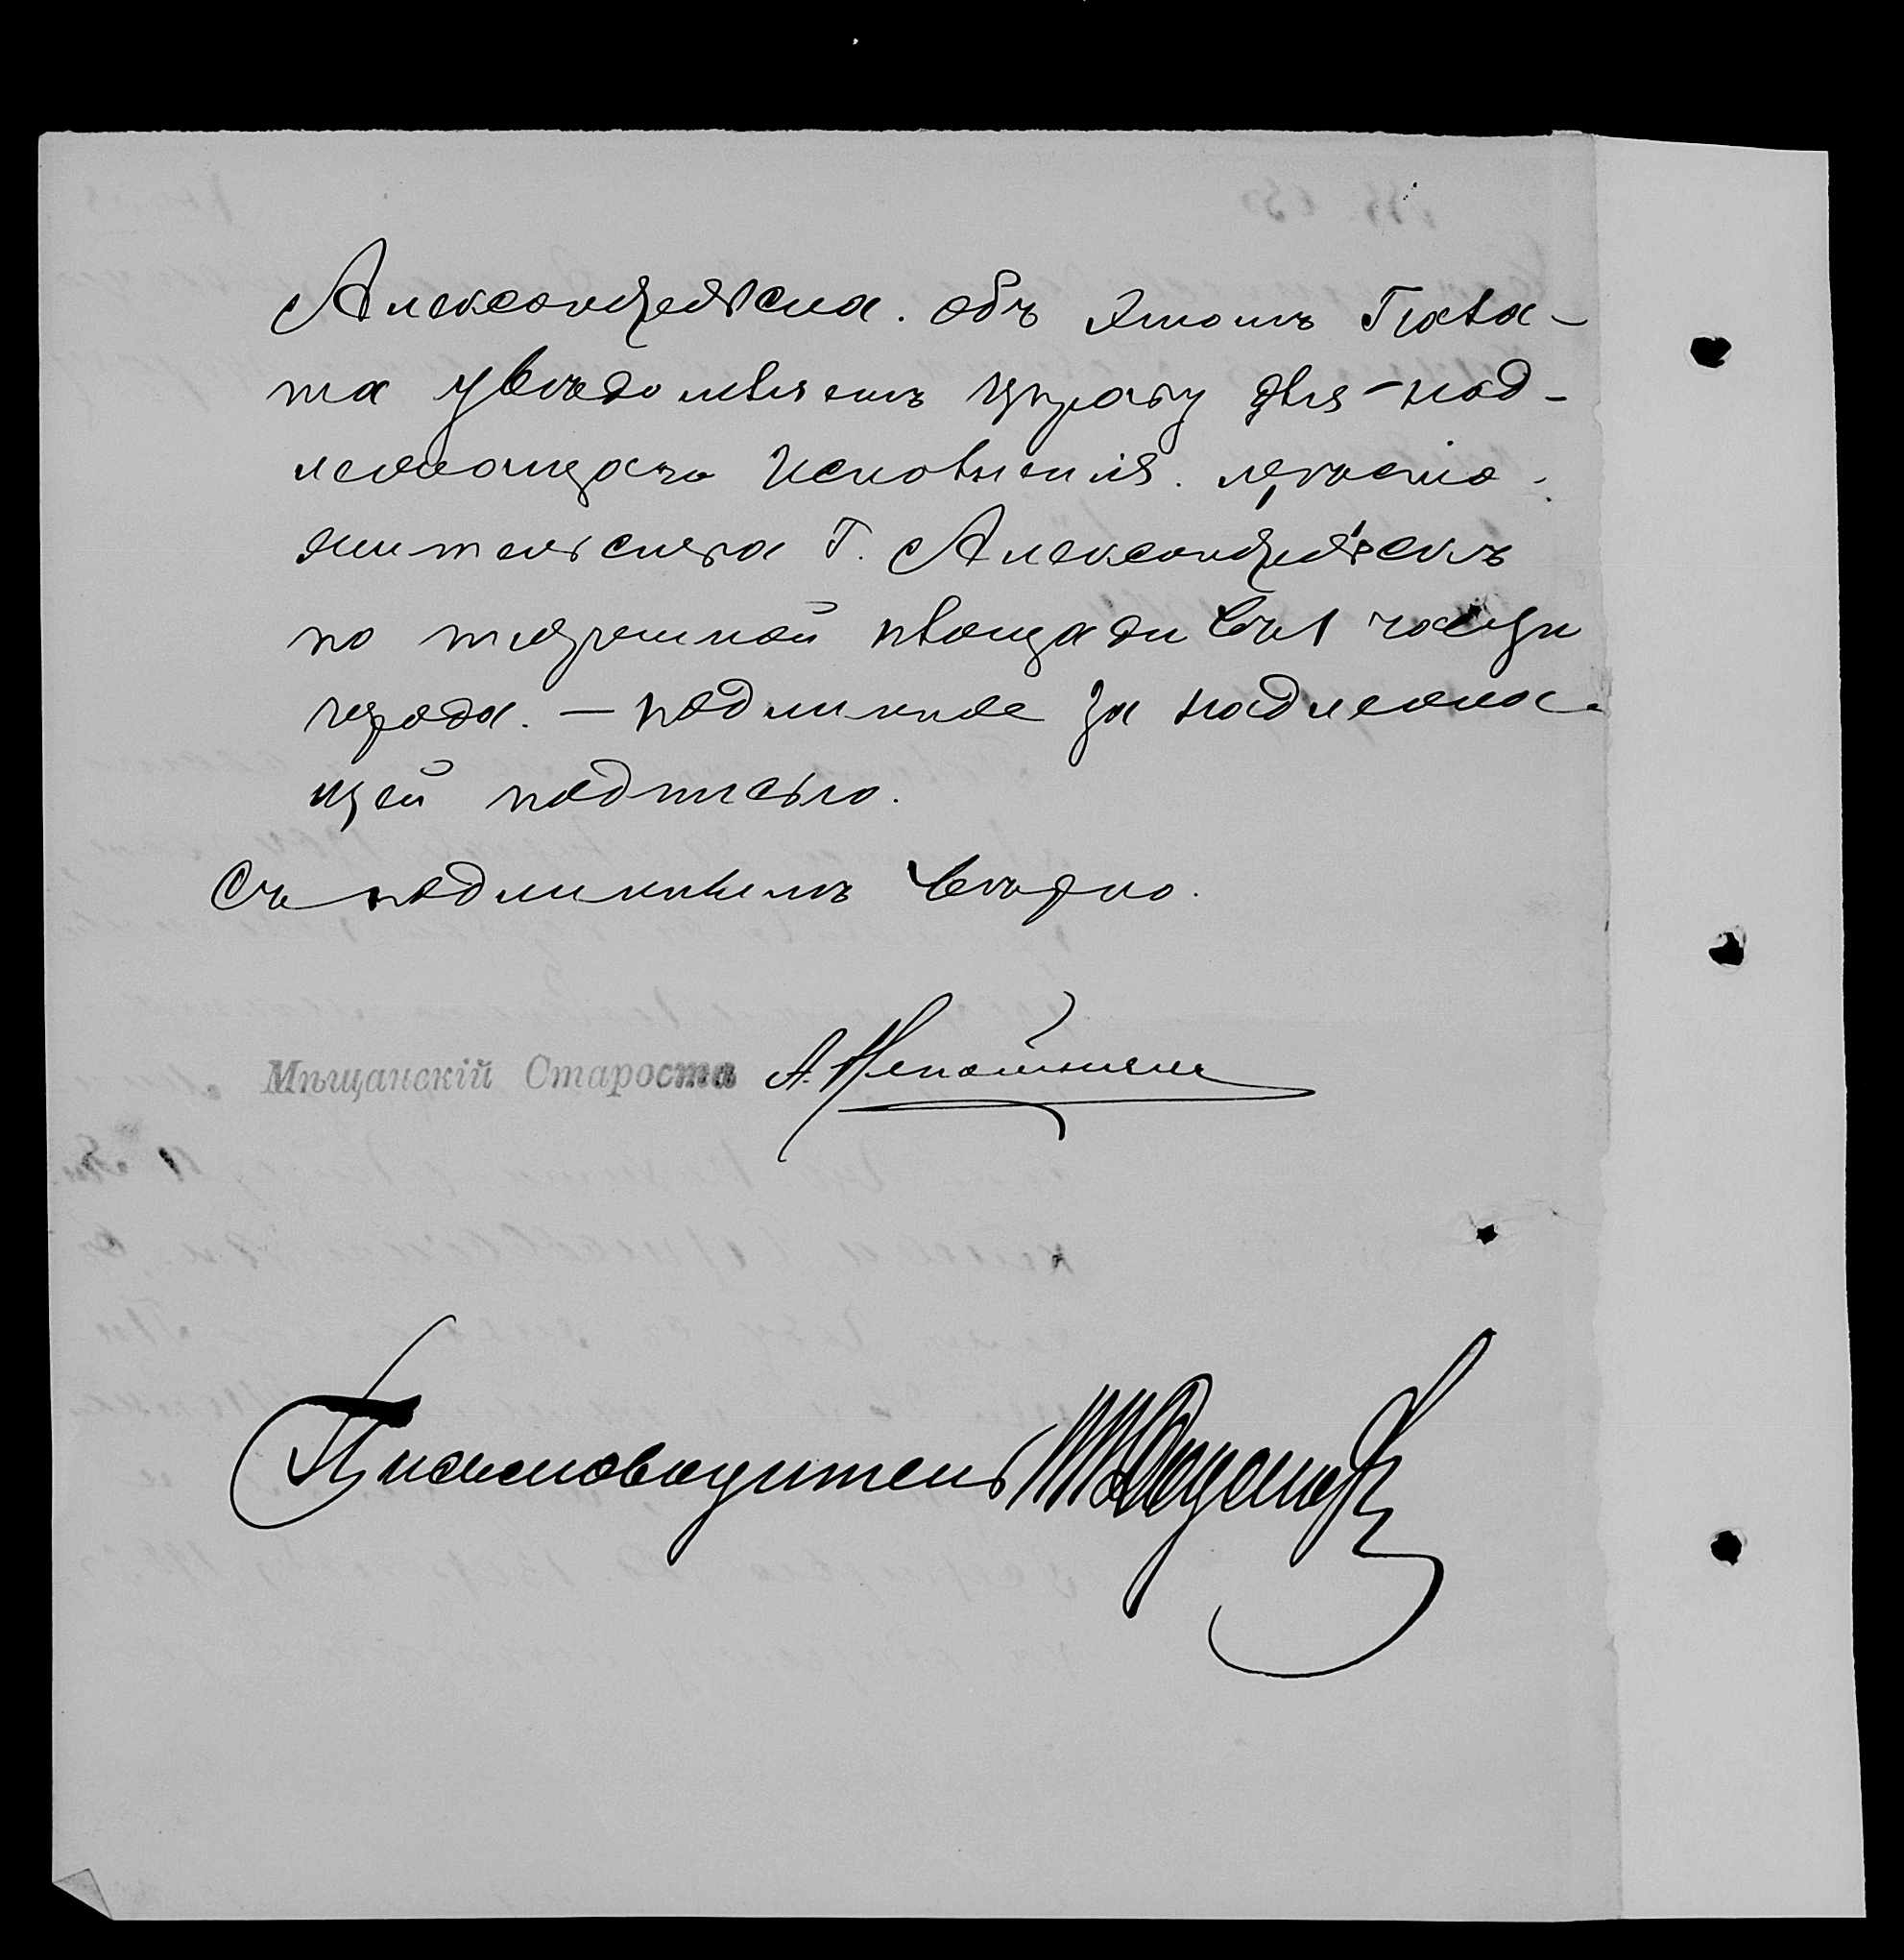 Александровска. Объ этомъ Пала-
та увѣдомляетъ управу для над-
лежащаго исполненія. мѣсто
жительства Г. Александровскъ
по площади части
города. — подлинное за надлежа-
щей подписью.
Съ подлиннымъ вѣрно.
Мѣщанскій Староста А.
Письмоводитель